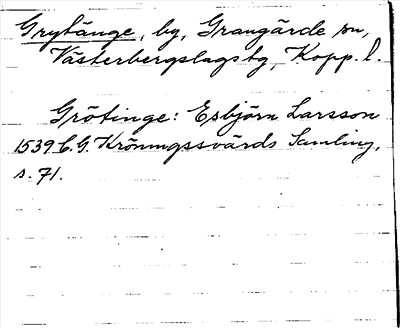 Grytänge, by, Grangärde sn,
Västerbergslags tg, Kopp. l.
Grötinge: Esbjörn Larsson
1539 C.G. Kröningssvärds Samling,
s. 71.